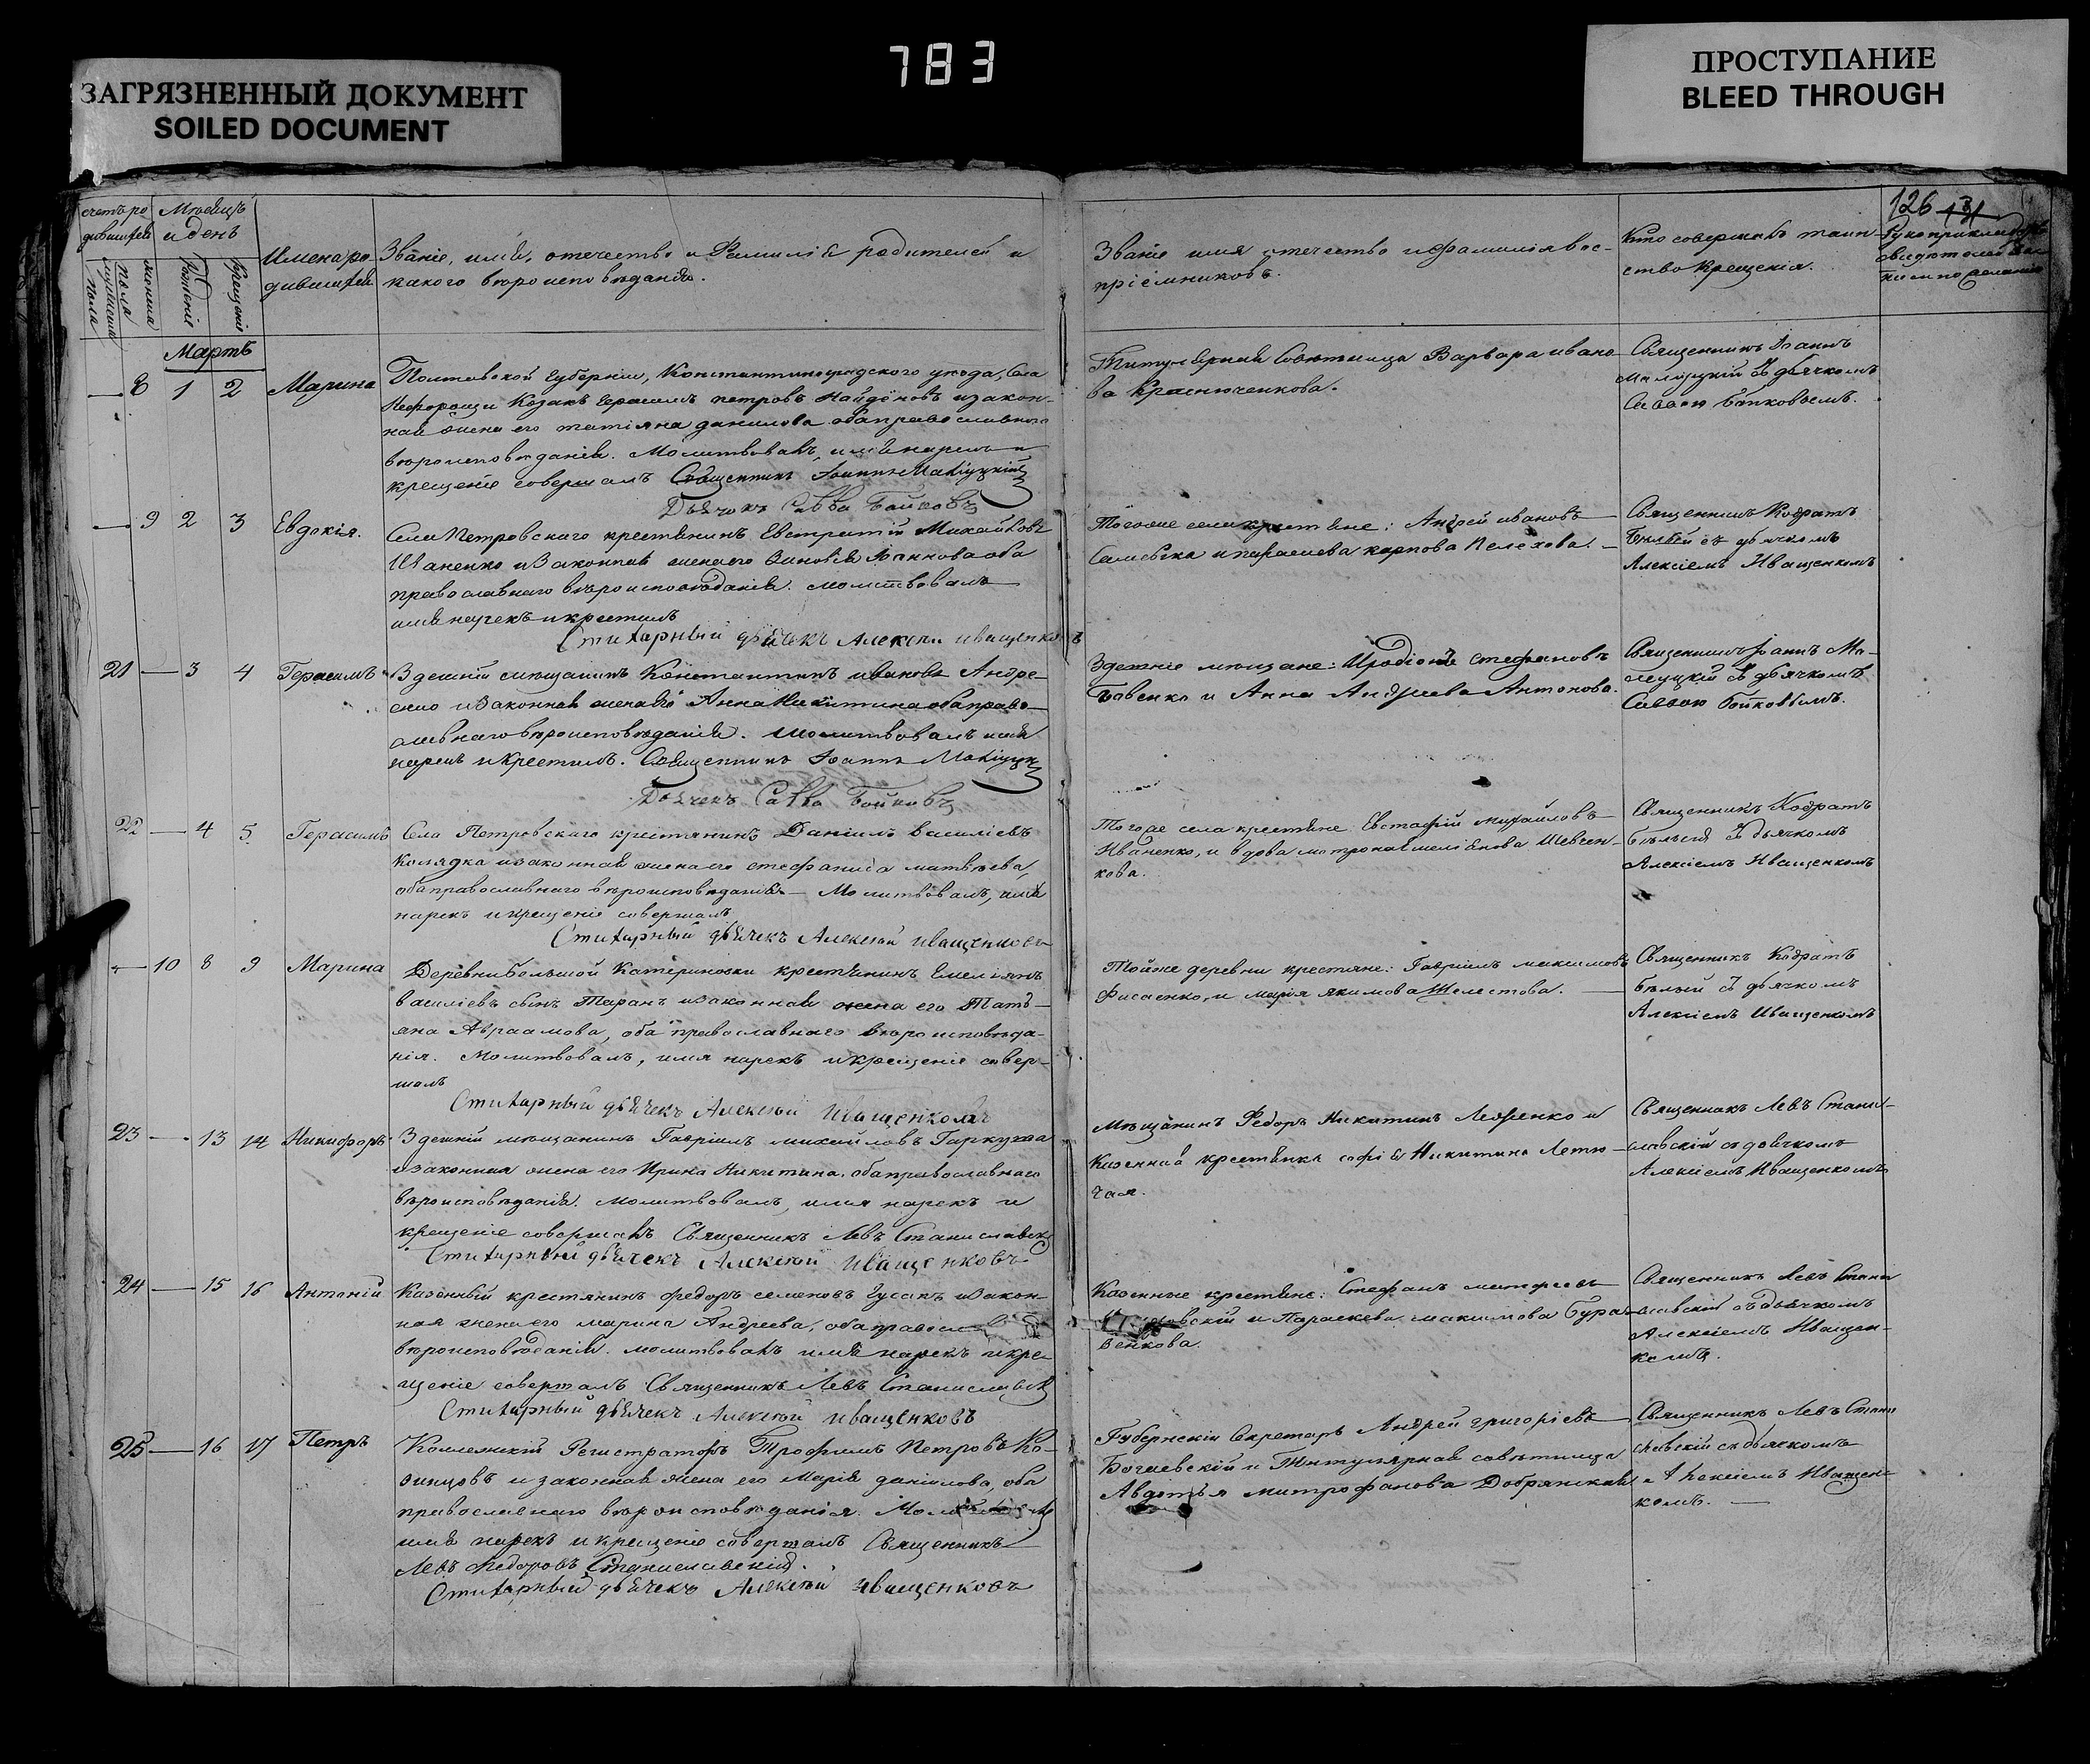 783
ЗАГРЯЗНЕННЫЙ ДОКУМЕНТ
SOILED DOCUMENT
ПРОСТУПАНИЕ
BLEED THROUGH
126
счетъ ро
дившихся
Мѣсяцъ
и день
мужеска
пола
женска
пола
рожденіе
крещеніе
Имена ро
дившихся
Званіе, имя, отечество и Фамилія родителей и
какого вѣроисповѣданія.
Званіе имя отечество и фамилія вос-
пріемниковъ.
Кто совершалъ таин
ство Крещенія.
Мартъ
8 1 2 Марина
Полтавской Губерніи, Константиноградского уѣзда, села
Нефорощи Козакъ Герасимъ петровъ Найдёновъ и закон-
ная жена его татіяна данилова оба православнаго
вѣроисповѣданія. Молитвовалъ, имя нарекъ и
крещеніе совершалъ Священникъ Іоаннъ
Дьячокъ Савва Бойковъ
Титулярная Совѣтница Варвара ивано
ва Краснюченкова.
Священникъ Іоаннъ
съ дьячкомъ
Саввою Бойковымъ.
9 2 3 Евдокія.
Села Петровскаго крестянинъ Евстратій Михайловъ
Иваненко и Законная жена его Зиновія Іоаннова оба
православнаго вѣроисповѣданія. молитвовалъ
имя нарекъ и крестилъ
Стихарный дьячекъ Алексѣй иващенковъ
Тогоже села крестяне: Андрей ивановъ
и параскева карпова Пелехова.
Священникъ Кодратъ
Бѣлый съ дьячкомъ
Алексіемъ Иващенкомъ
21 3 4 Герасимъ
Здешній мещанинъ Константинъ ивановъ Андре-
енко и законная жена его Анна Никитина оба право-
славнаго вѣроисповѣданія. Молитвовалъ имя
нарекъ и крестилъ. Священникъ Іоаннъ
Дьячекъ Савва Бойковъ
Здешніе мещане: Иродіонъ стефановъ
и Анна Андреева Антонова.
Священникъ Іоаннъ
съ дьячкомъ
Саввою Бойковымъ.
22 4 5 Герасимъ
Села Петровскаго крестянинъ Даніилъ василіевъ
Колядка и законная жена его стефанида матвѣева,
оба православнаго вѣроисповѣданія — Молитвовалъ, имя
нарекъ и крещеніе совершалъ
Стихарный дьячекъ Алексѣй иващенковъ
Тогоже села крестяне Евстафій михайловъ
Иваненко, и вдова матрона емеліянова Шевчен-
кова.
Священникъ Кодратъ
Бѣлый съ дьячкомъ
Алексіемъ Иващенкомъ
10 8 9 Марина
Деревни большой Катериновки крестянинъ Емеліянъ
василіевъ сынъ Таранъ и законная жена его Тать-
яна Авраамова, оба православнаго вѣроисповѣда-
нія. Молитвовалъ, имя нарекъ и крещеніе совер-
шалъ
Стихарный дьячекъ Алексѣй Иващенковъ
Тойже деревни крестяне: Гавріилъ максимовъ
Фисаенко, и марія якимова Шелестова.
Священникъ Кодратъ
Бѣлый съ дьячкомъ
Алексіемъ Иващенкомъ
23 13 14 Никифоръ
Здешній мещанинъ Гавріилъ михайловъ Гаркуша
и законная жена его Ирина Никитина, оба православнаго
вѣроисповѣданія. молитвовалъ, имя нарекъ и
крещеніе совершалъ Священникъ Левъ Станиславск
Стихарный дьячекъ Алексѣй Иващенковъ
Мѣщанинъ Федоръ Никитинъ и
Казенная крестянка софія Никитина Летю-
чая.
Священникъ Левъ Стани-
славскій съ дьячкомъ
Алексіемъ Иващенкомъ
24 15 16 Антоній
Казенный крестянинъ федоръ семеновъ Гусакъ и закон-
ная жена его марина Андреева, оба правосл
вѣроисповѣданія. молитвовалъ имя нарекъ и кре-
щеніе совершалъ Священникъ Левъ Станиславск
Стихарный дьячекъ Алексѣй иващенковъ
Казенные крестяне: Стефанъ матфеевъ
и Параскева максимова Бура-
венкова.
Священникъ Левъ Стани
славскій съ дьячкомъ
Алексіемъ Иващен-
комъ.
25 16 17 Петръ
Колежскій Регистраторъ Трофимъ Петровъ Ко-
зинцовъ и законная жена его Марія данилова, оба
православнаго вѣроисповѣданія.
имя нарекъ и крещеніе совершалъ Священникъ
Левъ Федоровъ Станиславскій.
Стихарный дьячекъ Алексѣй иващенковъ
Губернскій Секретарь Андрей григоріевъ
Богаевскій и Титулярная совѣтница
Авдотья митрофанова Добрянская
Священникъ Левъ Стани
славскій съ дьячкомъ
Алексіемъ Иващен-
комъ.